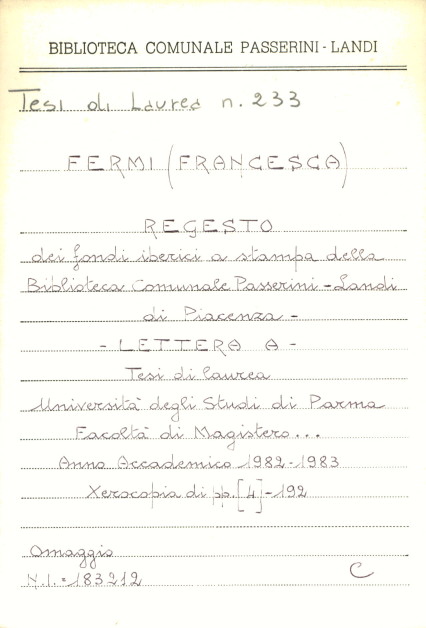 BIBLIOTECA COMUNALE PASSERINI - LANDI
Tesi di Laurea n. 233
FERMI (FRANCESCA)
REGESTO
dei fondi iberici a stampa della
Biblioteca Comunale Passerini - Landi
di Piacenza -
- LETTERA A -
Tesi di laurea
Università degli Studi di Parma
Facoltà di Magistero...
Anno Accademico 1982-1983
Xerocopia di pp. [4]-192
Omaggio
N.I. = 183212 C